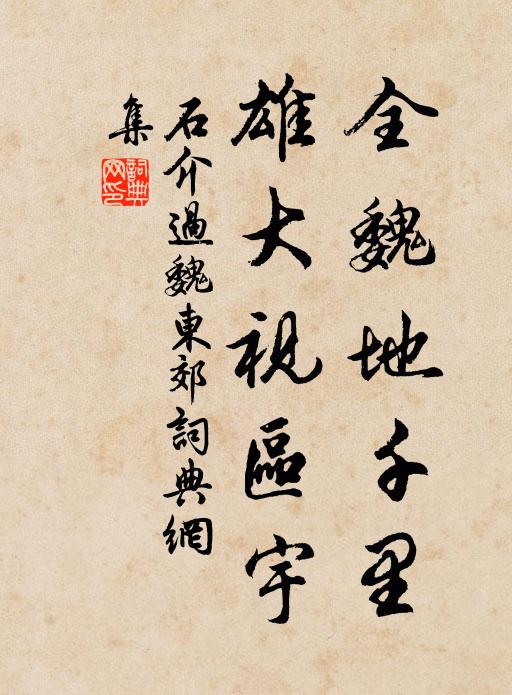 全魏地千里
雄大視區宇
石介過魏東郊詞典網
集
詞典
网印